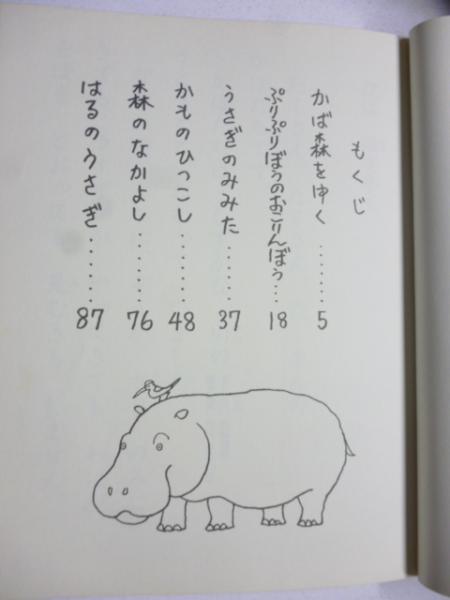 もくじ
かば森をゆく……… 5
ぷりぷりぼうのおこりんぼう… 18
うさぎのみみた…… 37
かものひっこし……… 48
森のなかよし……… 76
はるのうさぎ……… 87